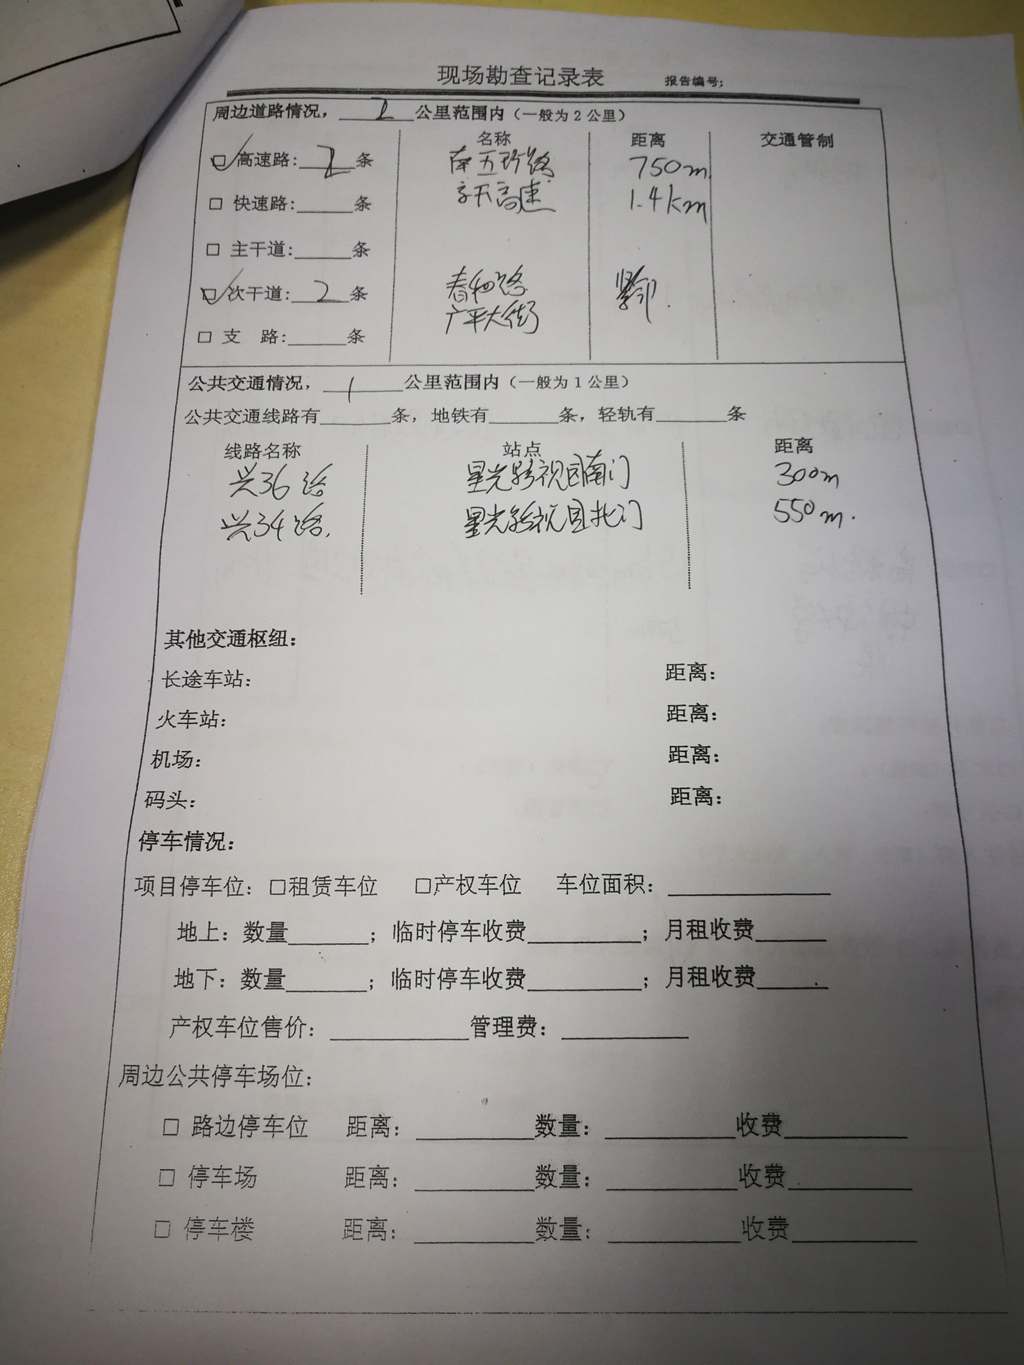 现场勘查记录表 报告编号:
周边道路情况，2公里范围内（一般为2公里）
名称 距离 交通管制
☑高速路:2条 南五环路 750m
京天高速 1.4km
□ 快速路:______条
□ 主干道:______条
☑次干道:2条 春和路 紧邻.
广平大街
□ 支 路:______条
公共交通情况，1公里范围内（一般为1公里）
公共交通线路有______条，地铁有______条，轻轨有______条
线路名称 站点 距离
兴36路 星光影视园南门 300m
兴34路. 星光影视园北门 550m.
其他交通枢纽：
长途车站： 距离：
火车站： 距离：
机场： 距离：
码头： 距离：
停车情况：
项目停车位：□租赁车位 □产权车位 车位面积：____________
地上：数量______；临时停车收费________；月租收费_____
地下：数量______；临时停车收费________；月租收费_____
产权车位售价：__________管理费：_________
周边公共停车场位：
□ 路边停车位 距离：_________数量：_________收费_________
□ 停车场 距离：_________数量：_________收费_________
□ 停车楼 距离：_________数量：_________收费_________